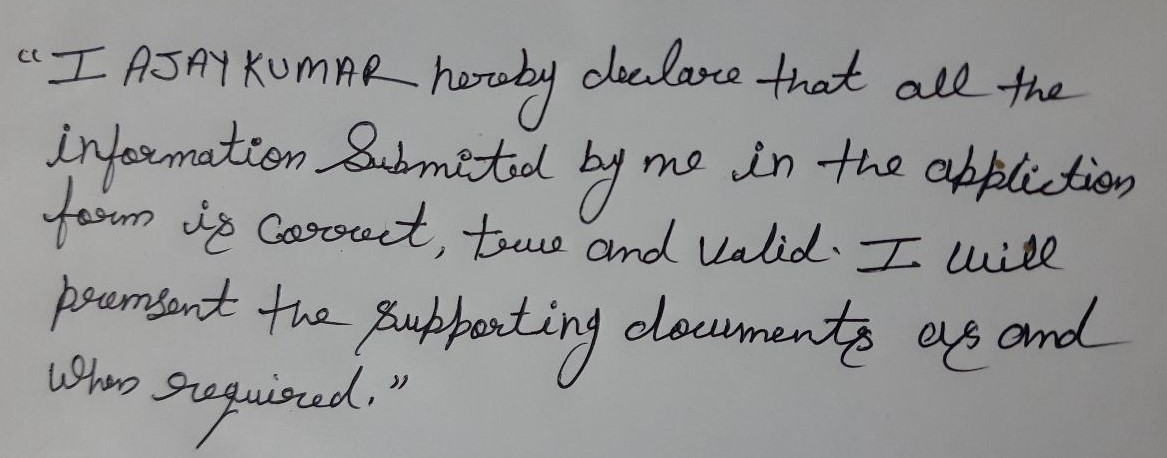 “I AJAY KUMAR hereby declare that all the
information Submited by me in the appliction
form is Correct, true and Valid. I will
premsent the supporting documents as and
When required.”